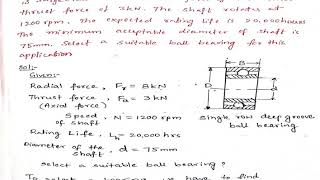 thrust force of 3kN. The shaft rotates at
1200 rpm. The expected rating life is 20,000 hours
The minimum acceptable diameter of shaft is
75mm. Select a suitable ball bearing for this
application.
Sol:-
Given:-
Radial force, Fr = 8kN
Thrust force, Fa = 3kN
(Axial force)
Speed of shaft, N = 1200 rpm
Rating Life, Lh = 20,000 hrs
Diameter of the shaft, d = 75mm
B
D
d
Single row deep groove
ball bearing
select a suitable ball bearing?
we have to find